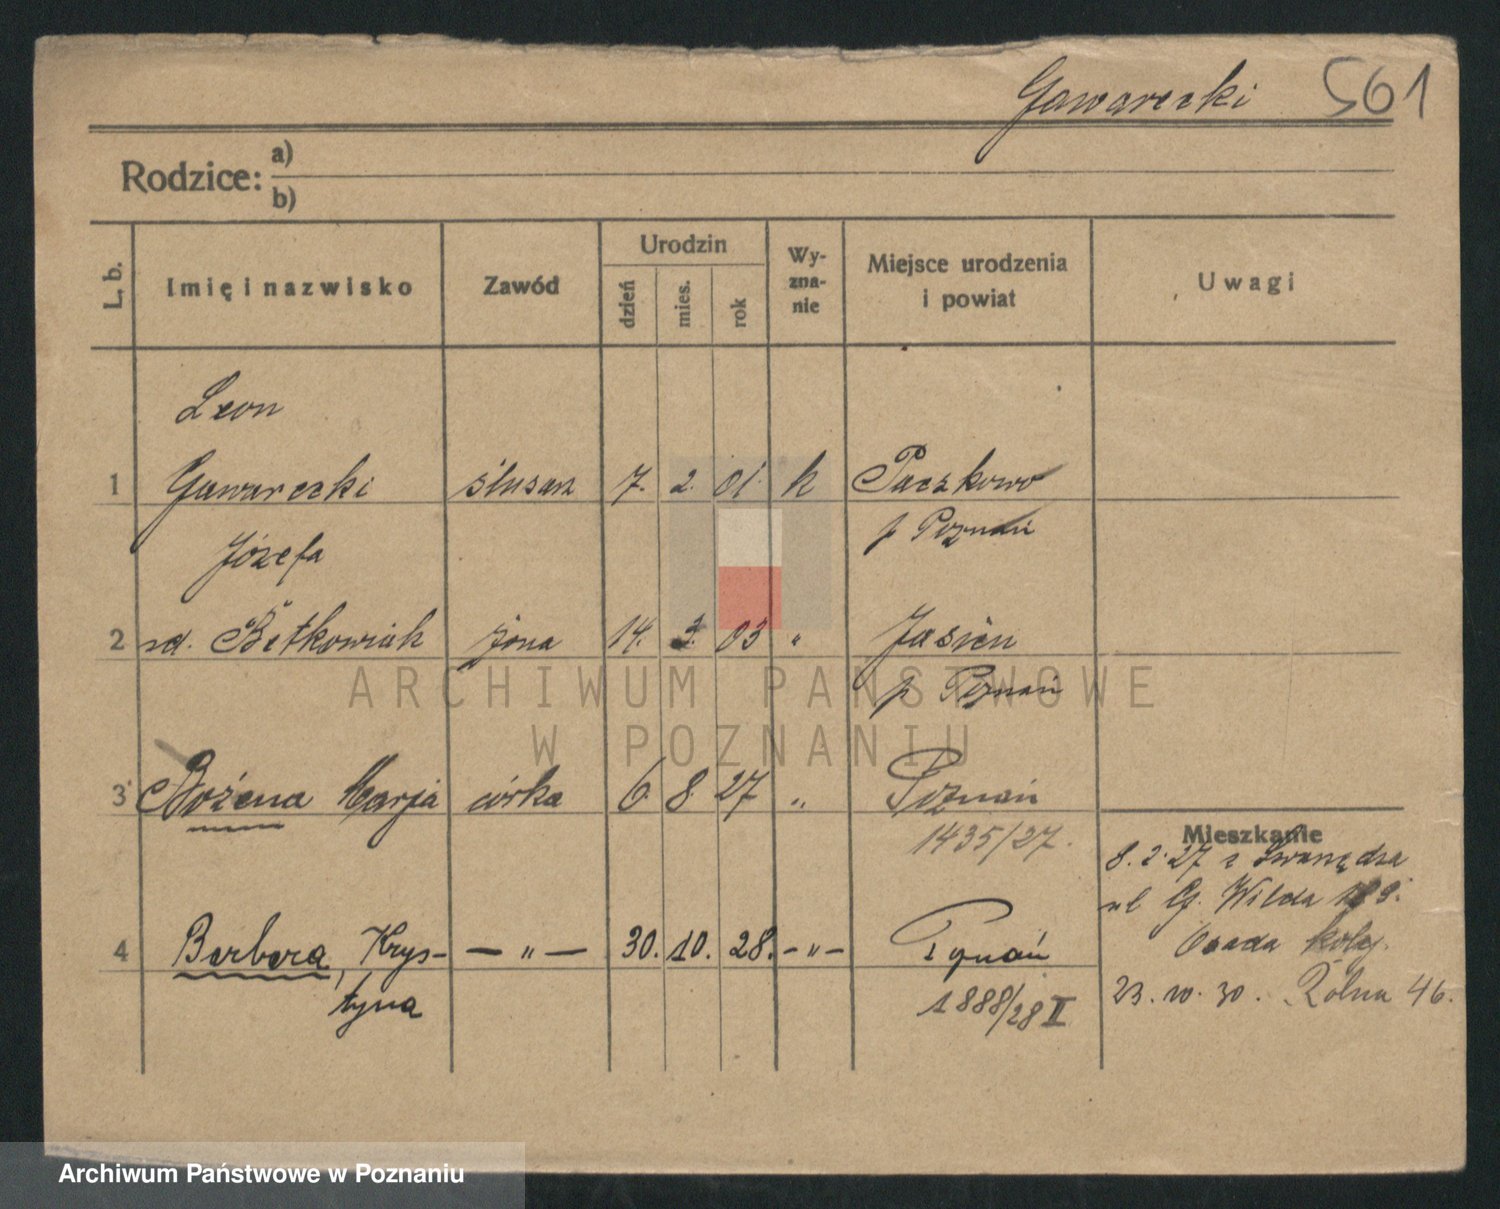 Gawarecki 561
Rodzice: a)
b)
L. b. Imię i nazwisko Zawód Urodzin dzień mies. rok Wyzna-nie Miejsce urodzenia i powiat Uwagi
Leon
1 Gawarecki ślusarz 7. 2. 01. k Paczkowo
p Poznań
Józefa
2 rd. Betkowiak żona 14. 3. 03 " Jasień
p Poznań
3 Bożena Marja córka 6. 8. 27 " Poznań
1435/27.
Mieszkanie
8. 2. 27 z Swarzędza
ul G. Wilda
Osada kolej.
4 Barbara, Krys- — " — 30. 10. 28. - " - Poznań
tyna
1888/28 II
23. 10. 30. Rolna 46.
ARCHIWUM PAŃSTWOWE
W POZNANIU
Archiwum Państwowe w Poznaniu